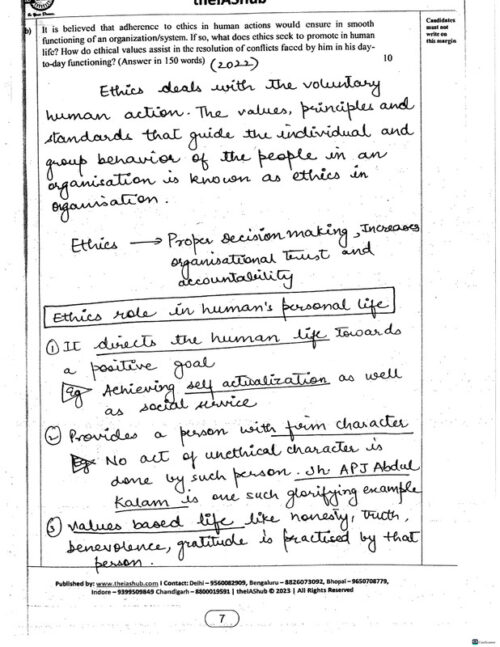 theIAShub
b) It is believed that adherence to ethics in human actions would ensure in smooth
functioning of an organization/system. If so, what does ethics seek to promote in human
life? How do ethical values assist in the resolution of conflicts faced by him in his day-
to-day functioning? (Answer in 150 words) (2022) 10
Candidates
must not
write on
this margin
Ethics deals with the voluntary
human action. The values, principles and
standards that guide the individual and
group behavior of the people in an
organisation is known as ethics in
organisation.
Ethics → Proper decision making, Increases
organisational trust and
accountability
Ethics role in human's personal life
① It directs the human life towards
a positive goal
Eg Achieving self actualization as well
as social service
② Provides a person with firm character
Eg No act of unethical character is
done by such person. Sh. APJ Abdul
Kalam is one such glorifying example
③ Values based life like honesty, truth,
benevolence, gratitude is practised by that
person.
Published by: www.theiashub.com I Contact: Delhi – 9560082909, Bengaluru – 8826073092, Bhopal – 9650708779,
Indore – 9399509849 Chandigarh – 8800019591 | theIAShub © 2023 | All Rights Reserved
7